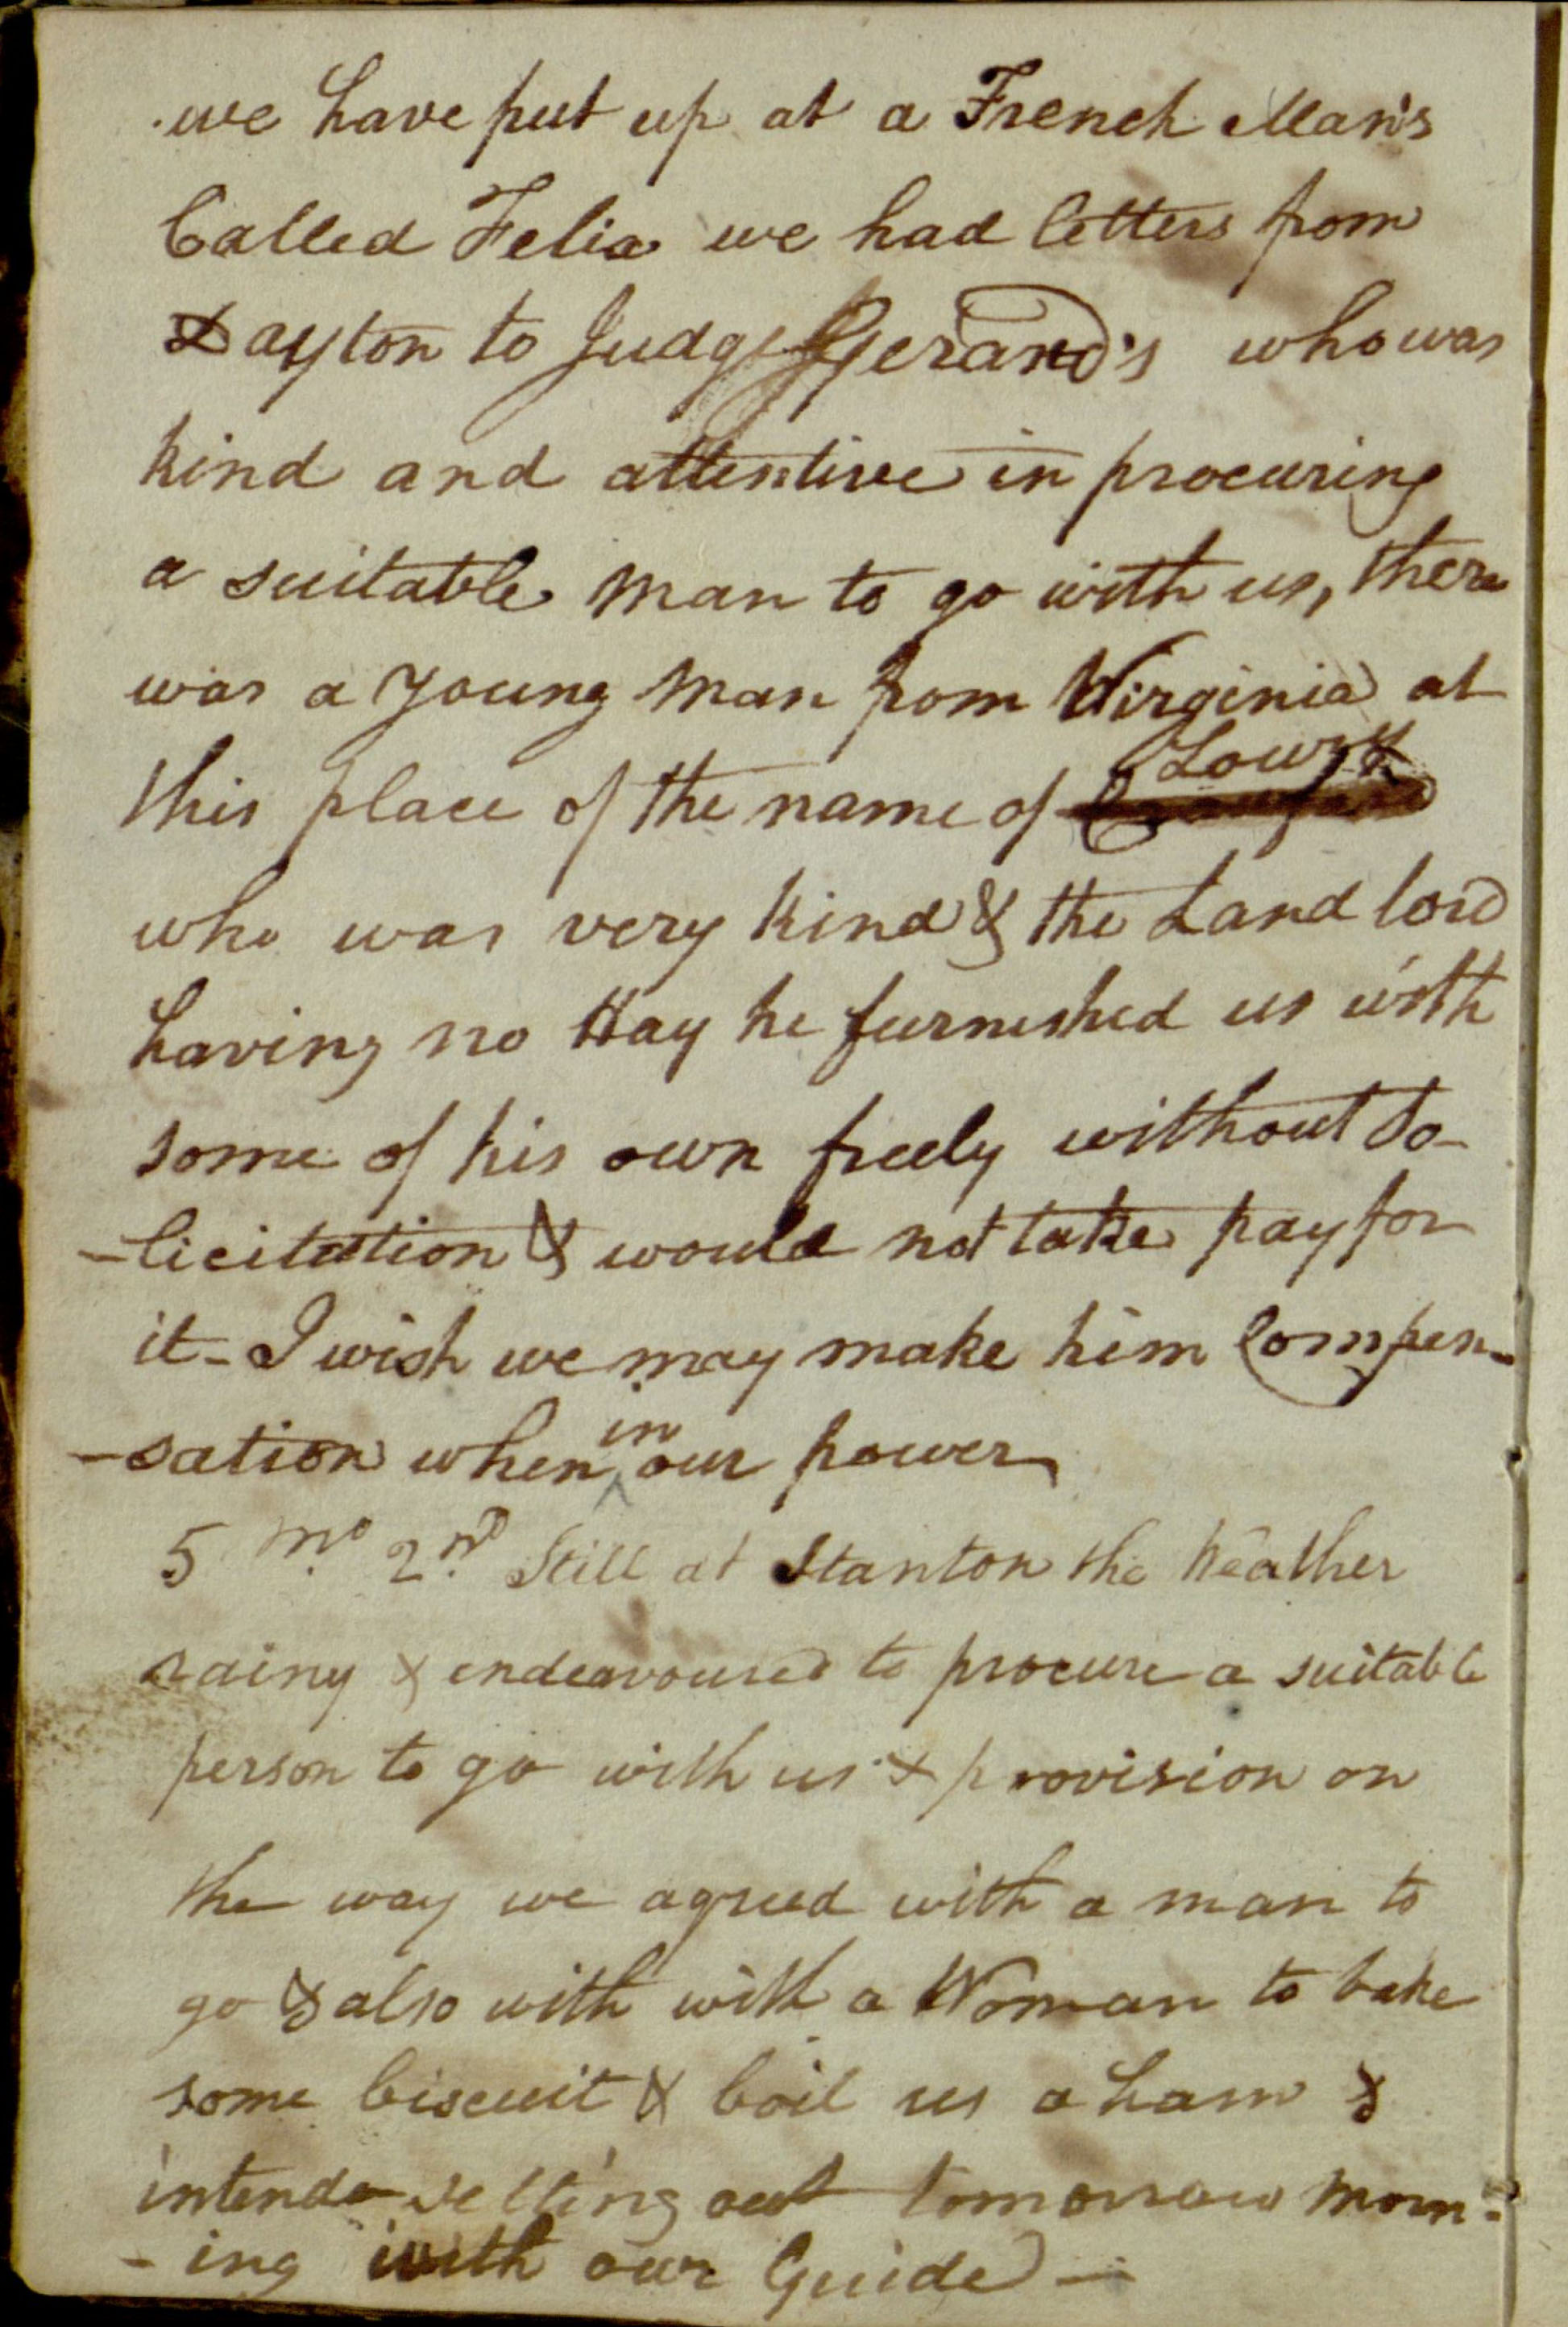 we have put up at a French Man's
Called Felix we had letters from
Dayton to Judge Gerard's who was
kind and attentive in procuring
a suitable man to go with us, there
was a young man from Virginia at
Lowry
this place of the name of
who was very kind & the Land lord
having no Hay he furnished us with
some of his own freely without So-
-licitation & would not take pay for
it - I wish we may make him Compen-
in
-sation when ^ our power
5 mo. 2nd. Still at Stanton the Weather
rainy & endeavoured to procure a suitable
person to go with us & provision on
the way we agreed with a man to
go & also with with a Woman to bake
some biscuit & boil us a ham &
intend setting out tomorrow morn-
-ing with our Guide -